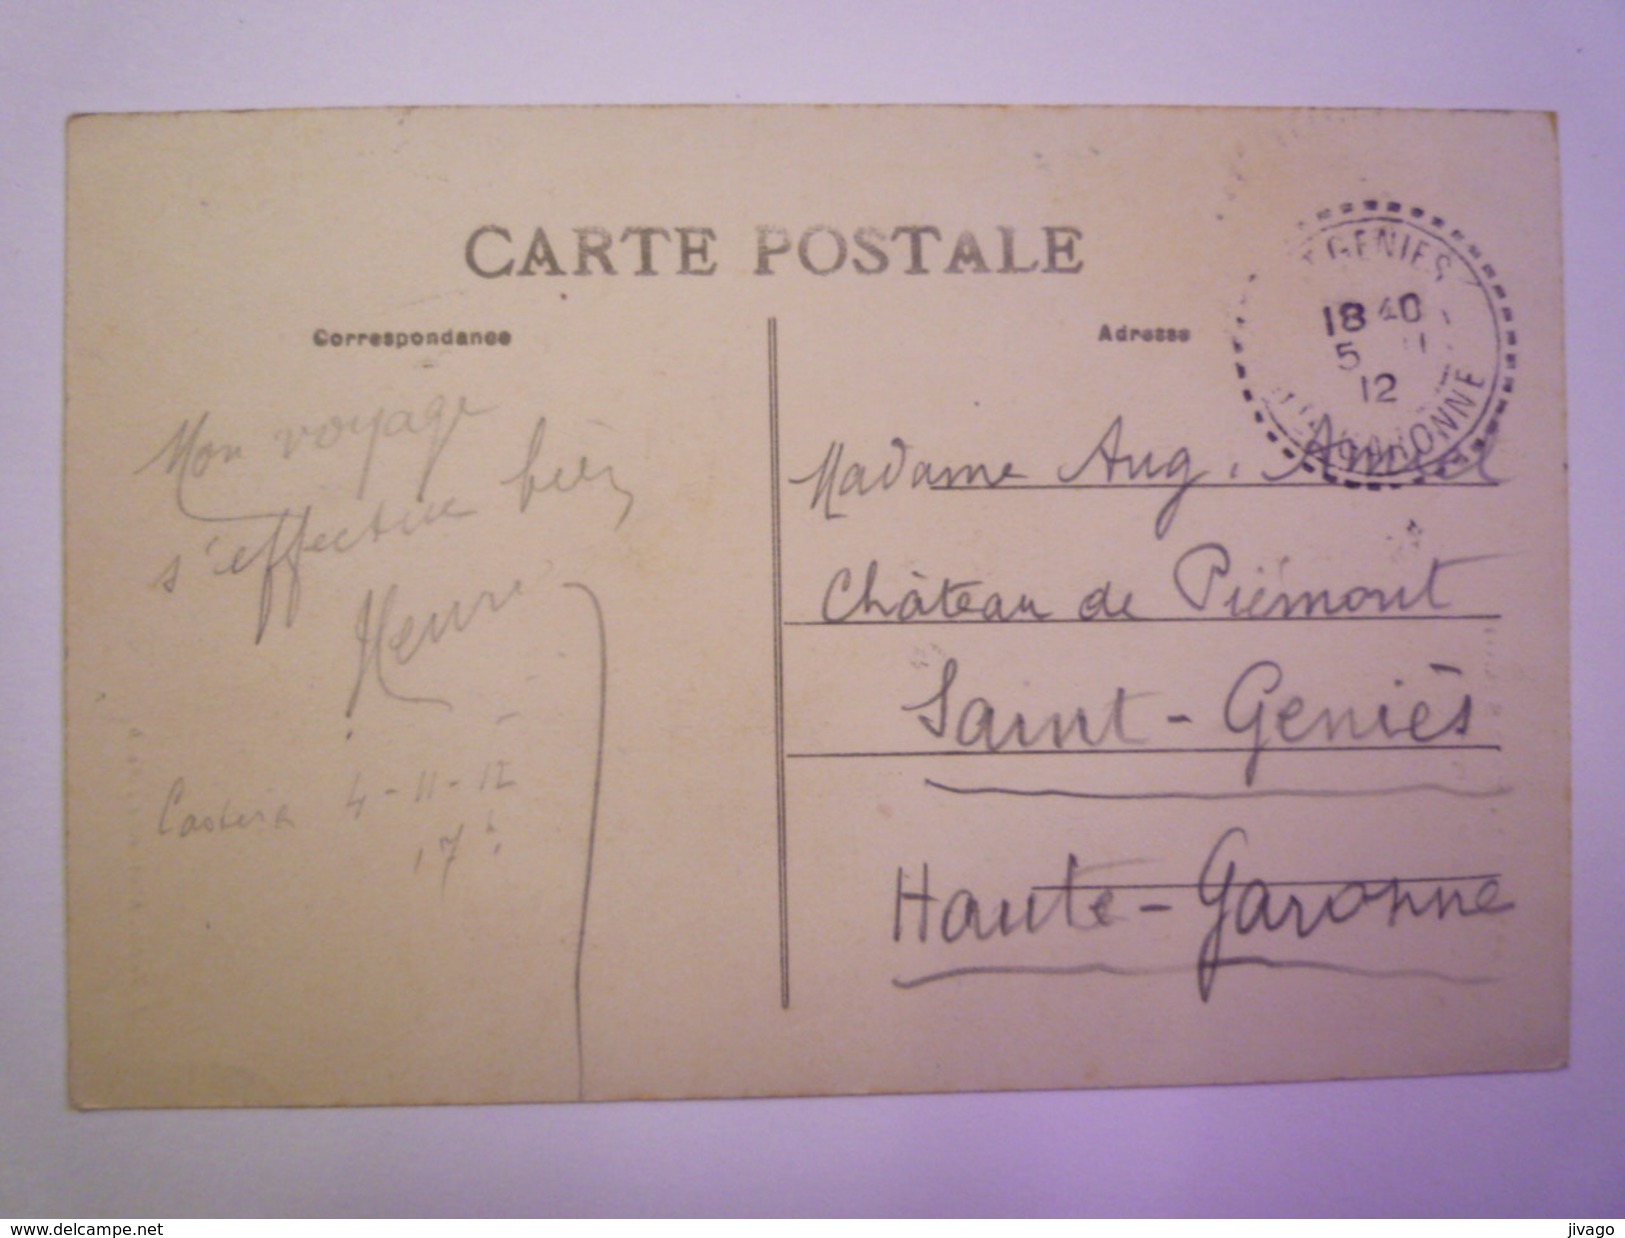 CARTE POSTALE
Correspondance
Mon voyage
s'effectue bien
Henri
4-11-12
17h
Adresse
GENIES
18 40
5 11
12
GARONNE
Madame Aug.
Château de Piémont
Saint-Geniès
Haute-Garonne
www.delcampe.net
jivago